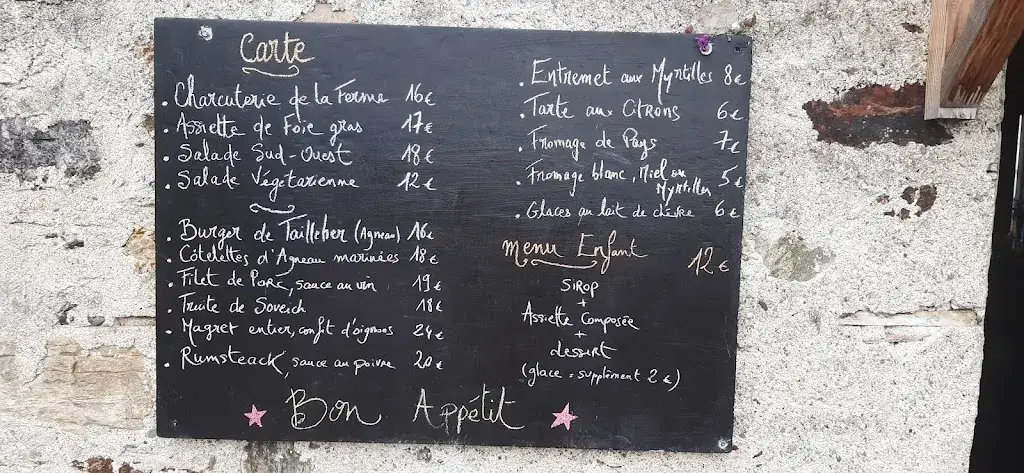 Carte
. Charcuterie de la Ferme 16€
. Assiette de Foie gras 17€
. Salade Sud-Ouest 18€
. Salade Végétarienne 12€
. Burger de Tailleher (Agneau) 16€
. Côtelettes d'Agneau marinées 18€
. Filet de Porc, sauce au vin 19€
. Truite de Soveich 18€
. Magret entier, confit d'oignons 24€
. Rumsteack, sauce au poivre 20€
. Entremet aux Myrtilles 8€
. Tarte aux Citrons 6€
. Fromage de Pays 7€
. Fromage blanc, Miel ou Myrtilles 5€
. Glaces au lait de chèvre 6€
Menu Enfant 12€
Sirop
+
Assiette Composée
+
dessert
(glace = supplément 2€)
Bon Appétit